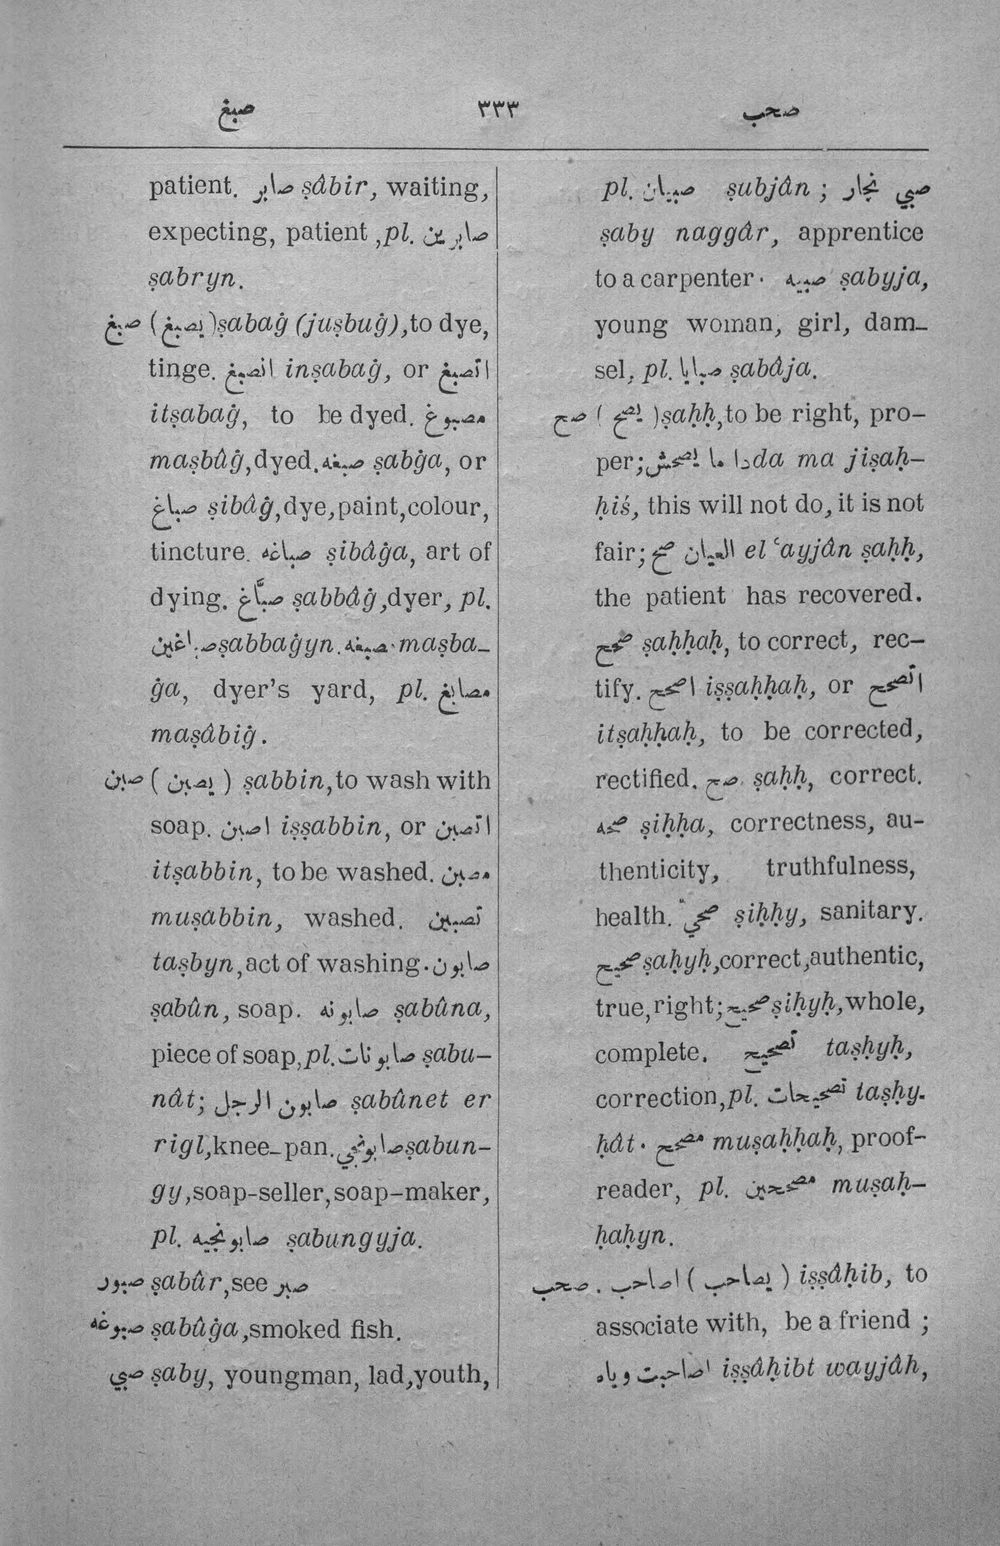 صبغ ٣٣٣ صحب
patient. صابر ṣâbir, waiting,
expecting, patient ,pl. صابرين
ṣabryn.
صبغ (يصبغ) ṣabaġ (juṣbuġ), to dye,
tinge. انصبغ inṣabaġ, or اتصبغ
itṣabaġ, to be dyed. مصبوغ
maṣbûġ, dyed. صبغه ṣabġa, or
صباغ ṣibâġ, dye, paint, colour,
tincture. صباغه ṣibâġa, art of
dying. صبَّاغ ṣabbâġ, dyer, pl.
صباغين ṣabbaġyn. مصبغه maṣba-
ġa, dyer's yard, pl. مصابغ
maṣâbiġ.
صبن (يصبن) ṣabbin, to wash with
soap. اصبن iṣṣabbin, or اتصبن
itṣabbin, to be washed. مصبن
muṣabbin, washed. تصبين
taṣbyn, act of washing. صابون
ṣabûn, soap. صابونه ṣabûna,
piece of soap, pl. صابونات ṣabu-
nât; صابون الرجل ṣabûnet er
rigl, knee-pan. صابونجي ṣabun-
gy, soap-seller, soap-maker,
pl. صابونجيه ṣabungyja.
صبور ṣabûr, see صبر
صبوغه ṣabûġa, smoked fish.
صبي ṣaby, youngman, lad, youth,
pl. صبيان ṣubjân ; صبي نجار
ṣaby naggâr, apprentice
to a carpenter. صبيه ṣabyja,
young woman, girl, dam-
sel, pl. صبايا ṣabâja.
صح (يصح) ṣaḥḥ, to be right, pro-
per; دا ما يصحش da ma jiṣaḥ-
ḥiś, this will not do, it is not
fair; العيان صح el ʿayjân ṣaḥḥ,
the patient has recovered.
صحح ṣaḥḥaḥ, to correct, rec-
tify. اصحح iṣṣaḥḥaḥ, or اتصحح
itṣaḥḥaḥ, to be corrected,
rectified. صح ṣaḥḥ, correct.
صحه ṣiḥḥa, correctness, au-
thenticity, truthfulness,
health. صحي ṣiḥḥy, sanitary.
صحيح ṣaḥyḥ, correct, authentic,
true, right; صحيح ṣiḥyḥ, whole,
complete. تصحيح taṣḥyḥ,
correction, pl. تصحيحات taṣḥy-
ḥât. مصحح muṣaḥḥaḥ, proof-
reader, pl. مصححين muṣaḥ-
ḥaḥyn.
صحب . اصاحب (يصاحب) iṣṣâḥib, to
associate with, be a friend ;
اصاحبت وياه iṣṣâḥibt wayjâh,